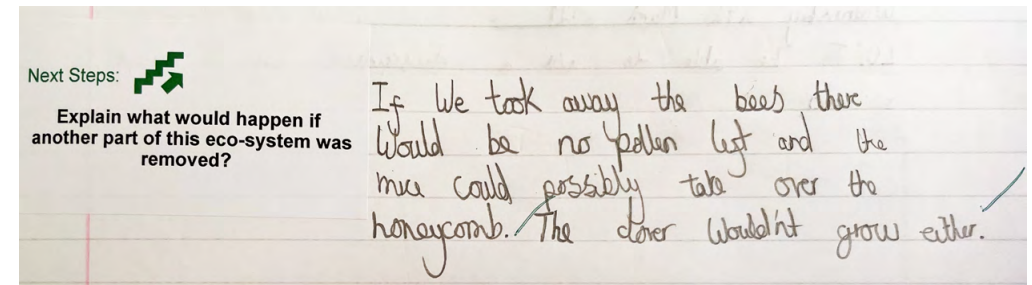 Next Steps:
Explain what would happen if
another part of this eco-system was
removed?
If We took away the bees there
Would be no pollen left and the
mice could possibly take over the
honeycomb. The clover Would'nt grow either.